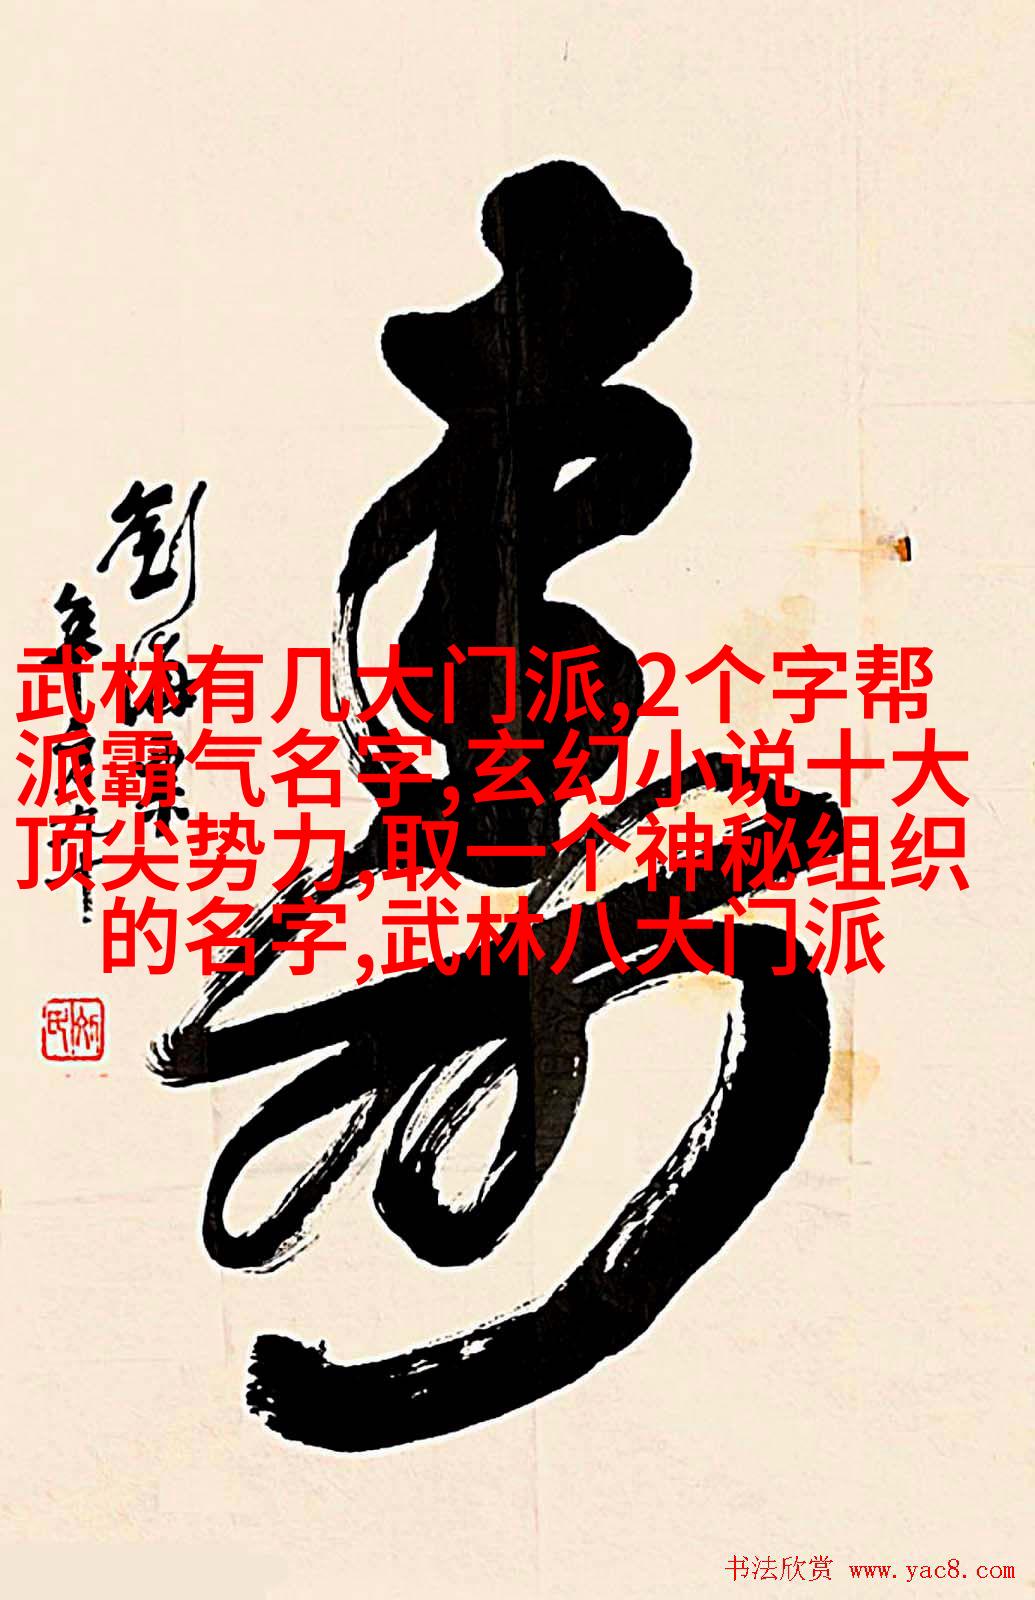 寿
劉海粟
武林有几大门派,2个字帮
派霸气名字,玄幻小说十大
顶尖势力,取一个神秘组织
的名字,武林八大门派
书法欣赏 www.yac8.com